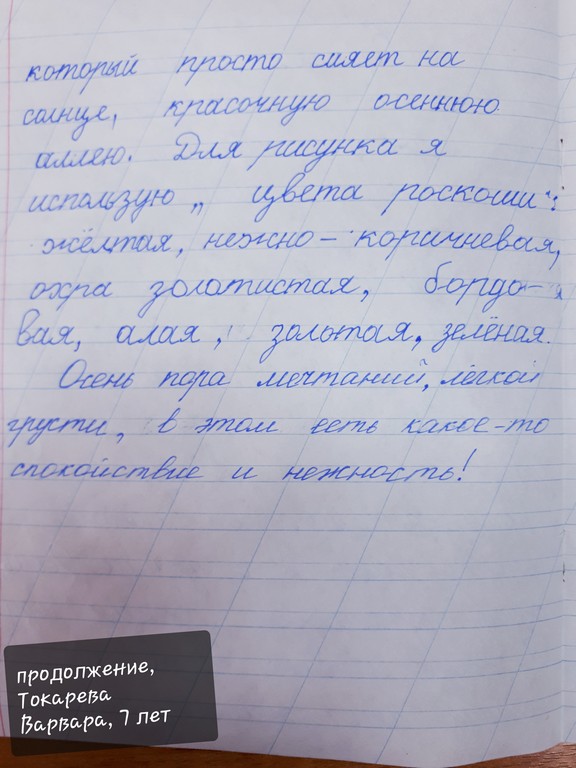 который просто сияет на
солнце, красочную осеннюю
аллею. Для рисунка я
использую „ цвета роскоши":
жёлтая, нежно - коричневая,
охра золотистая, бордо-
вая, алая, золотая, зелёная.
Осень пора мечтаний, лёгкой
грусти, в этом есть какое-то
спокойствие и нежность!
продолжение,
Токарева
Варвара, 7 лет